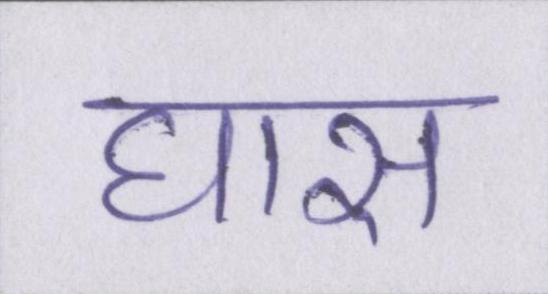 घास